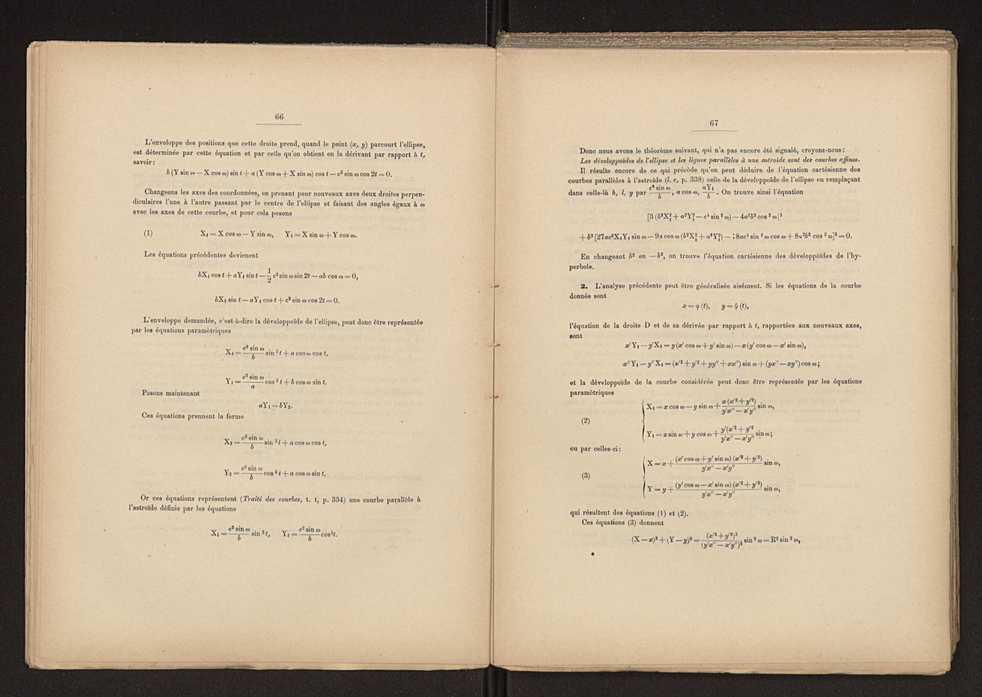 66
L'enveloppe des positions que cette droite prend, quand le point (x, y) parcourt l'ellipse,
est déterminée par cette équation et par celle qu'on obtient en la dérivant par rapport à t,
savoir:
b (Y sin ω — X cos ω) sin t + a (Y cos ω + X sin ω) cos t — c² sin ω cos 2t = 0.
Changeons les axes des coordonnées, en prenant pour nouveaux axes deux droites perpen-
diculaires l'une à l'autre passant par le centre de l'ellipse et faisant des angles égaux à ω
avec les axes de cette courbe, et pour cela posons
(1) X₁ = X cos ω — Y sin ω, Y₁ = X sin ω + Y cos ω.
Les équations précédentes deviennent
bX₁ cos t + aY₁ sin t — 1/2 c² sin ω sin 2t — ab cos ω = 0,
bX₁ sin t — aY₁ cos t + c² sin ω cos 2t = 0.
L'enveloppe demandée, c'est-à-dire la développoïde de l'ellipse, peut donc être représentée
par les équations paramétriques
X₁ = c² sin ω / b sin ³ t + a cos ω cos t,
Y₁ = c² sin ω / a cos ³ t + b cos ω sin t.
Posons maintenant
aY₁ = bY₂.
Ces équations prennent la forme
X₂ = c² sin ω / b sin ³ t + a cos ω cos t,
Y₂ = c² sin ω / b cos ³ t + a cos ω sin t.
Or ces équations représentent (Traité des courbes, t. I, p. 334) une courbe parallèle à
l'astroïde définie par les équations
X₁ = c² sin ω / b sin ³ t, Y₁ = c² sin ω / b cos³ t.
67
Donc nous avons le théorème suivant, qui n'a pas encore été signalé, croyons-nous:
Les développoïdes de l'ellipse et les lignes parallèles à une astroïde sont des courbes affines.
Il résulte encore de ce qui précède qu'on peut déduire de l'équation cartésienne des
courbes parallèles à l'astroïde (l. c., p. 338) celle de la développoïde de l'ellipse en remplaçant
dans celle-là h, l, y par c² sin ω / b, a cos ω, aY₁ / b. On trouve ainsi l'équation
En changeant b² en — b², on trouve l'équation cartésienne des développoïdes de l'hy-
perbole.
2. L'analyse précédente peut être généralisée aisément. Si les équations de la courbe
donnée sont
l'équation de la droite D et de sa dérivée par rapport à t, rapportées aux nouveaux axes,
sont
x' Y₁ — y' X₁ = y (x' cos ω + y' sin ω) — x (y' cos ω — x' sin ω),
x'' Y₁ — y'' X₁ = (x'² + y'² + yy'' + xx'') sin ω + (yx'' — xy'') cos ω;
et la développoïde de la courbe considérée peut donc être représentée par les équations
paramétriques
(2) X₁ = x cos ω — y sin ω + x'(x'² + y'²) / y'x'' — x'y'' sin ω,
Y₁ = x sin ω + y cos ω + y'(x'² + y'²) / y'x'' — x'y'' sin ω;
ou par celles-ci:
(3) X = x + (x' cos ω + y' sin ω) (x'² + y'²) / y'x'' — x'y'' sin ω,
Y = y + (y' cos ω — x' sin ω) (x'² + y'²) / y'x'' — x'y'' sin ω,
qui résultent des équations (1) et (2).
Ces équations (3) donnent
(X — x)² + (Y — y)² = (x'² + y'²)³ / (y'x'' — x'y'')² sin ² ω = R² sin ² ω,